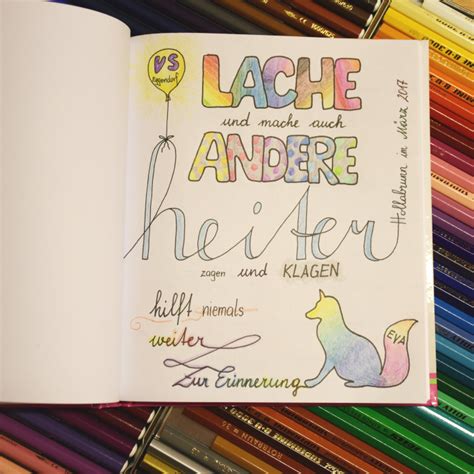 VS
Eggendorf
LACHE
und mache auch
ANDERE
heiter
zagen und KLAGEN
hilft niemals
weiter
Zur Erinnerung
EVA
Hollabrunn im März 2017